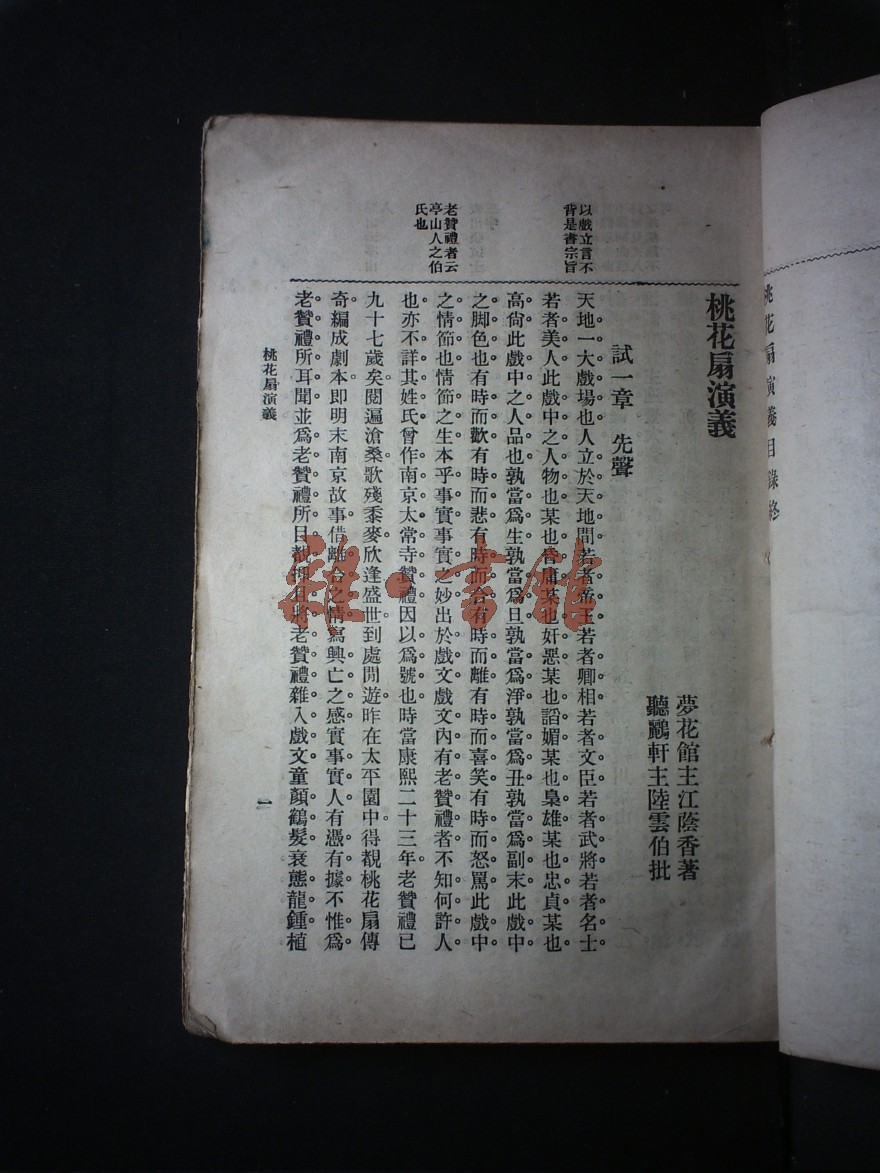 桃花扇演義目錄終
桃花扇演義
夢花館主江蔭香著
聽鸝軒主陸雲伯批
試一章　先聲
以戲立言不
背是書宗旨
天地一大戲場也人立於天地間若者帝王若者卿相若者文臣若者武將若者名士
若者美人此戲中之人物也某也昏庸某也奸惡某也謟媚某也梟雄某也忠貞某也
高尙此戲中之人品也孰當爲生孰當爲旦孰當爲淨孰當爲丑孰當爲副末此戲中
之脚色也有時而歡有時而悲有時而合有時而離有時而喜笑有時而怒罵此戲中
老贊禮者云
亭山人之伯
氏也
之情節也情節之生本乎事實事實之妙出於戲文戲文內有老贊禮者不知何許人
也亦不詳其姓氏曾作南京太常寺贊禮因以爲號也時當康熙二十三年老贊禮已
九十七歲矣閱遍滄桑歌殘黍麥欣逢盛世到處閒遊昨在太平園中得覩桃花扇傳
奇編成劇本即明末南京故事借離合之情寫興亡之感實事實人有憑有據不惟爲
老贊禮所耳聞並爲老贊禮所目覩且將老贊禮雜入戲文童顏鶴髮衰態龍鍾植
桃花扇演義
雜·書館